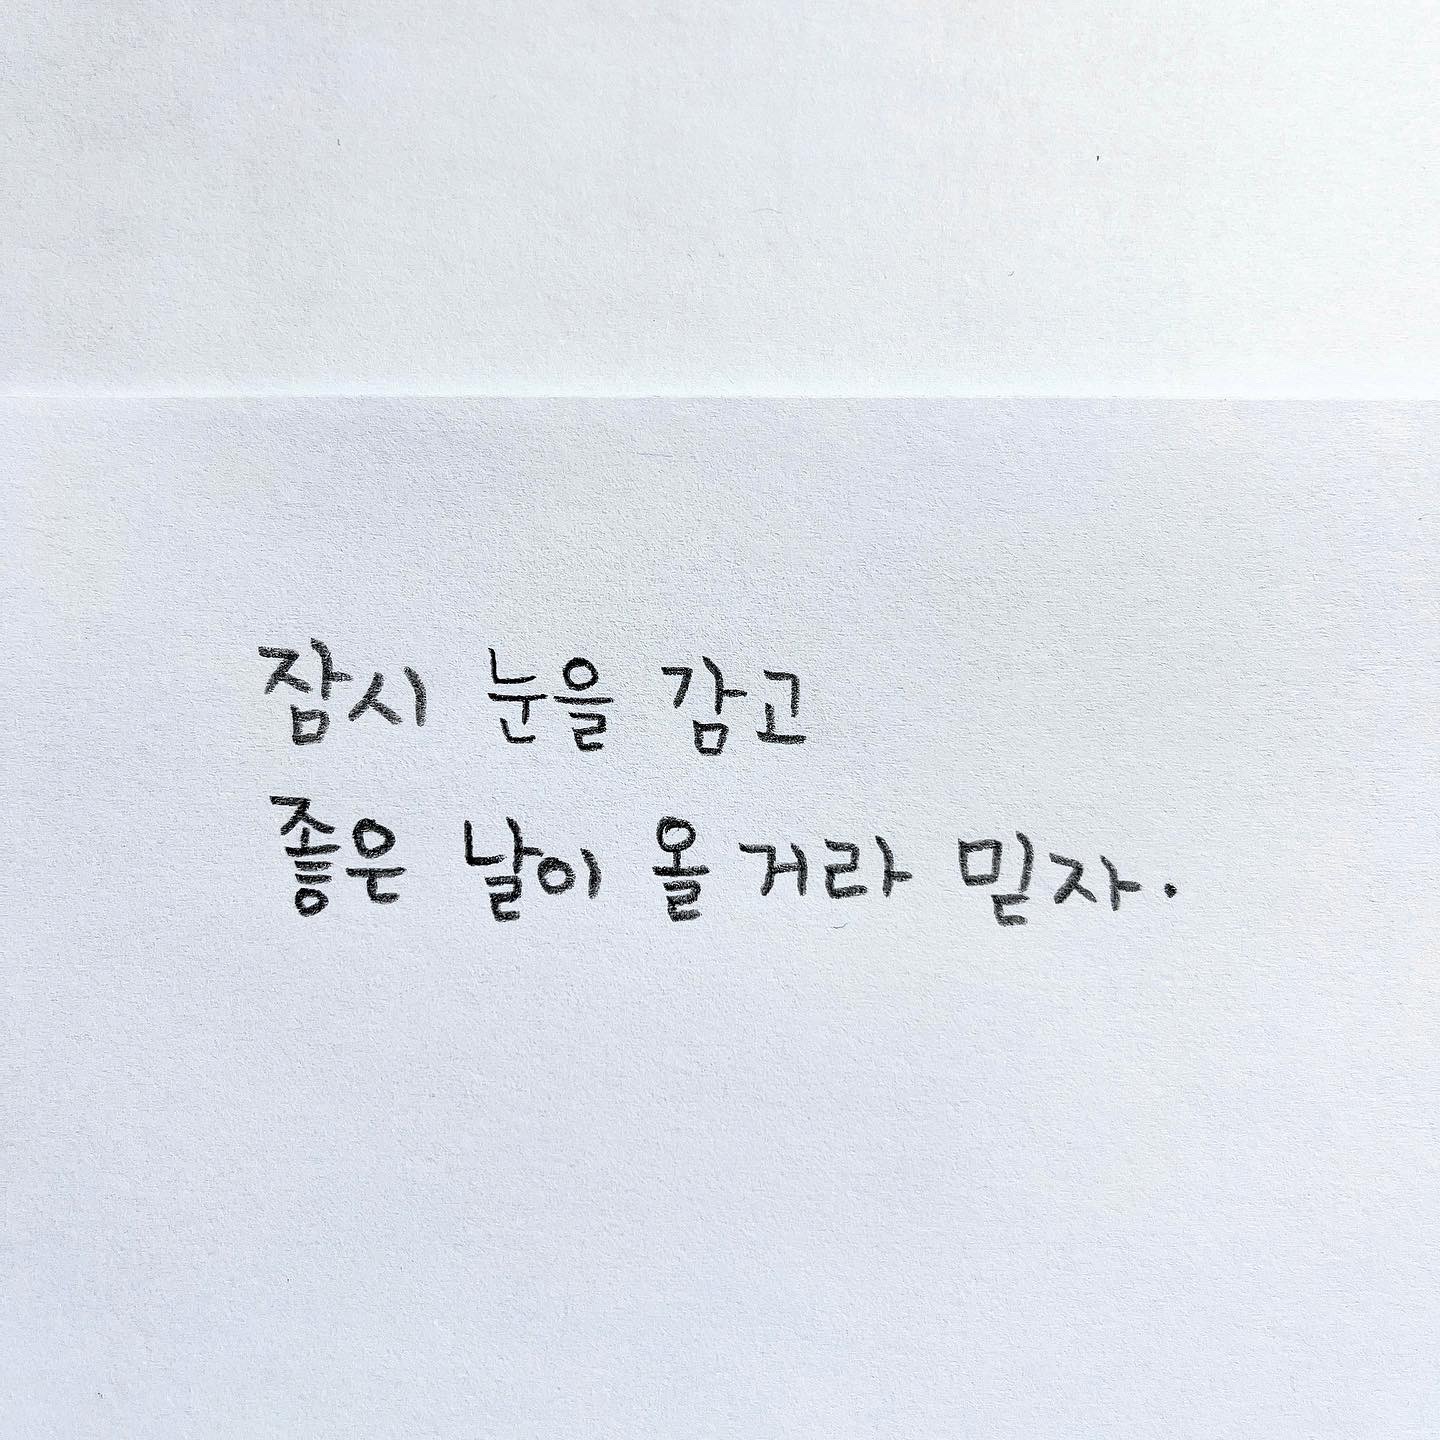 잠시 눈을 감고
좋은 날이 올 거라 믿자.